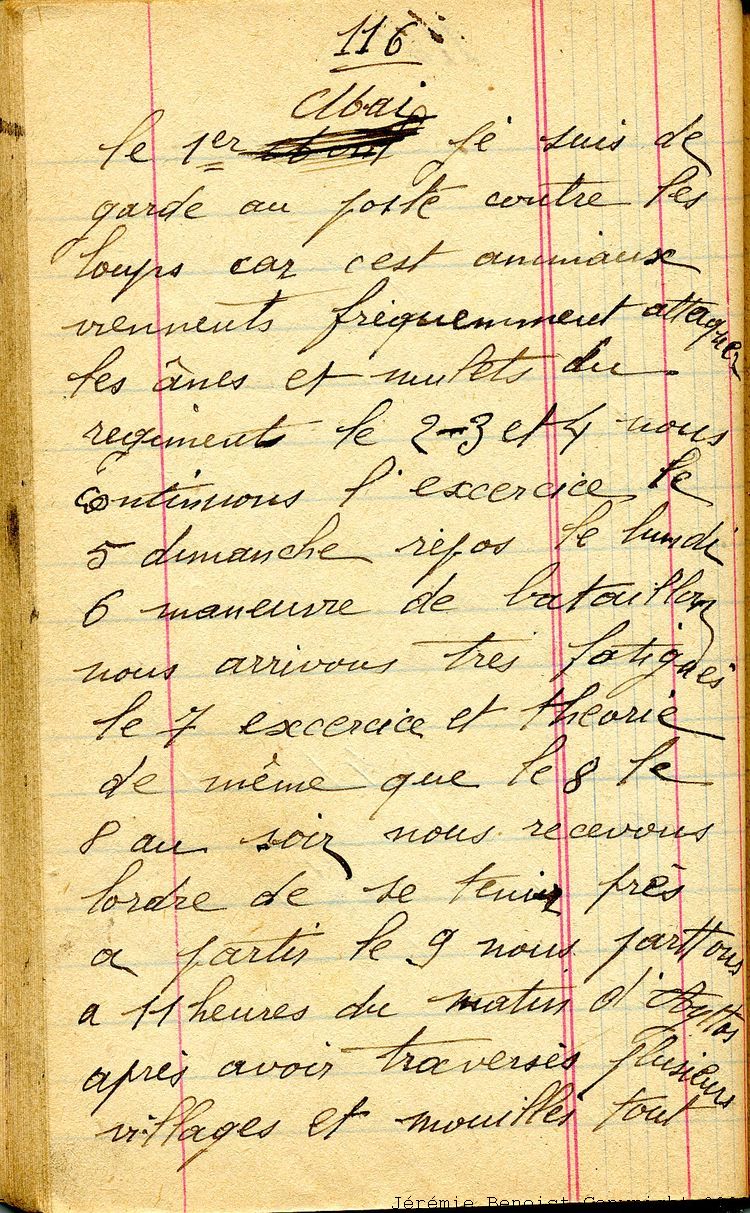 116
Mai
le 1er je suis de
garde au poste contre les
loups car cest animiaux
viennents fréquemment attaquer
les ânes et mulets du
regiments le 2-3 et 4 nous
continuons l'excercice le
5 dimanche répos le lundi
6 maneuvre de bataillon
nous arrivons trés fatigués
le 7 excercice et théorie
de même que le 8 le
8 au soir nous recevons
lordre de se tenir près
a partir le 9 nous parttons
a 11 heures du matin d'
après avoir traversés plusieurs
villages et mouillés tout
Jérémie Benoist Copyright